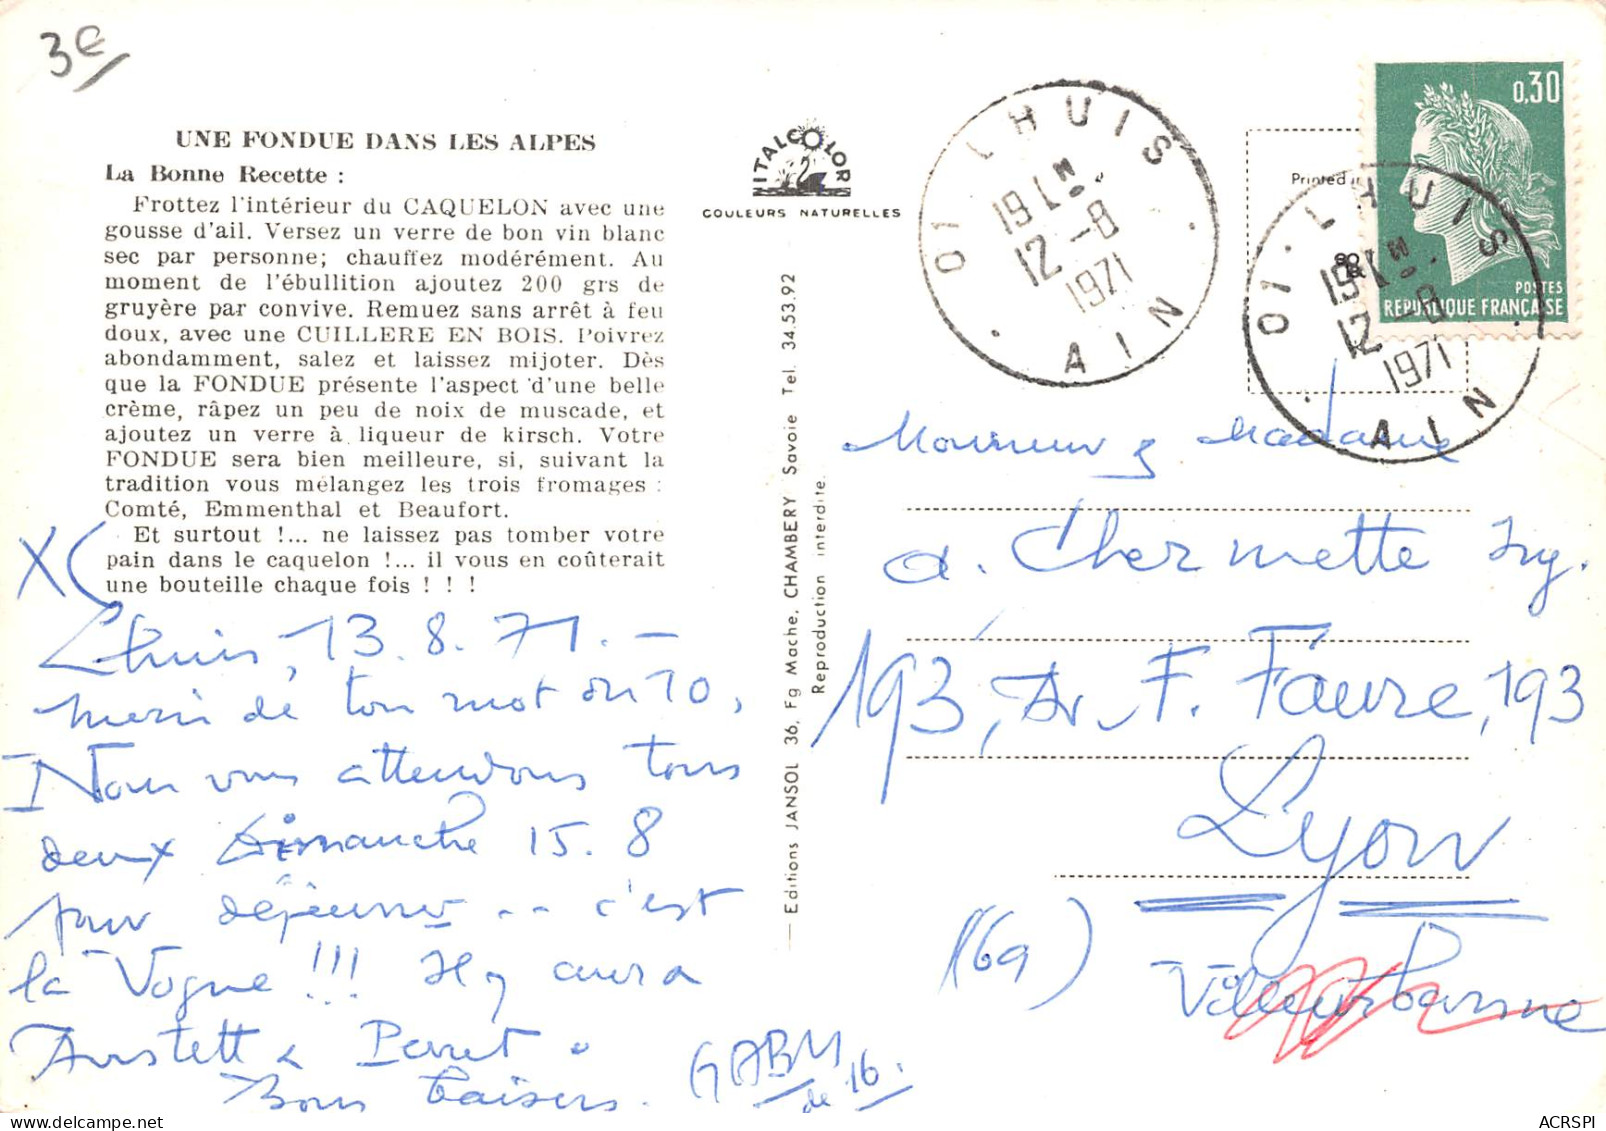 3€
UNE FONDUE DANS LES ALPES
La Bonne Recette :
Frottez l'intérieur du CAQUELON avec une
gousse d'ail. Versez un verre de bon vin blanc
sec par personne; chauffez modérément. Au
moment de l'ébullition ajoutez 200 grs de
gruyère par convive. Remuez sans arrêt à feu
doux, avec une CUILLERE EN BOIS. Poivrez
abondamment, salez et laissez mijoter. Dès
que la FONDUE présente l'aspect d'une belle
crème, râpez un peu de noix de muscade, et
ajoutez un verre à liqueur de kirsch. Votre
FONDUE sera bien meilleure, si, suivant la
tradition vous mélangez les trois fromages :
Comté, Emmenthal et Beaufort.
Et surtout !... ne laissez pas tomber votre
pain dans le caquelon !... il vous en coûterait
une bouteille chaque fois ! ! !
Lhuis, 13.8.71.-
merci de ton mot du 10,
Nous vous attendons tous
deux Dimanche 15.8
pour déjeuner -- c'est
la Vogue !!! Il y aura
Anstett & Perret.
Bons baisers.
GABY
de 16.
ITALCOLOR
COULEURS NATURELLES
Editions JANSOL 36, Fg Mache, CHAMBERY Savoie Tel. 34.53.92
Reproduction interdite.
01 LHUIS
12 -8
1971
AIN
Printed
0,30
POSTES
REPUBLIQUE FRANÇAISE
01 LHUIS
12 -8
1971
AIN
Monsieur & Madame
A. Chermette Ing.
193, Av. F. Faure, 193
Lyon
(69)
Villeurbanne
ACRSPI